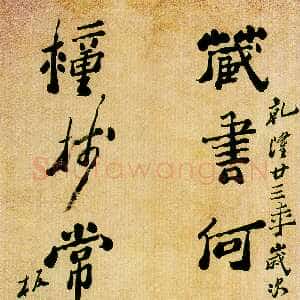 乾隆廿三年歲次
藏書何
種樹常
板
Shufawang.CN